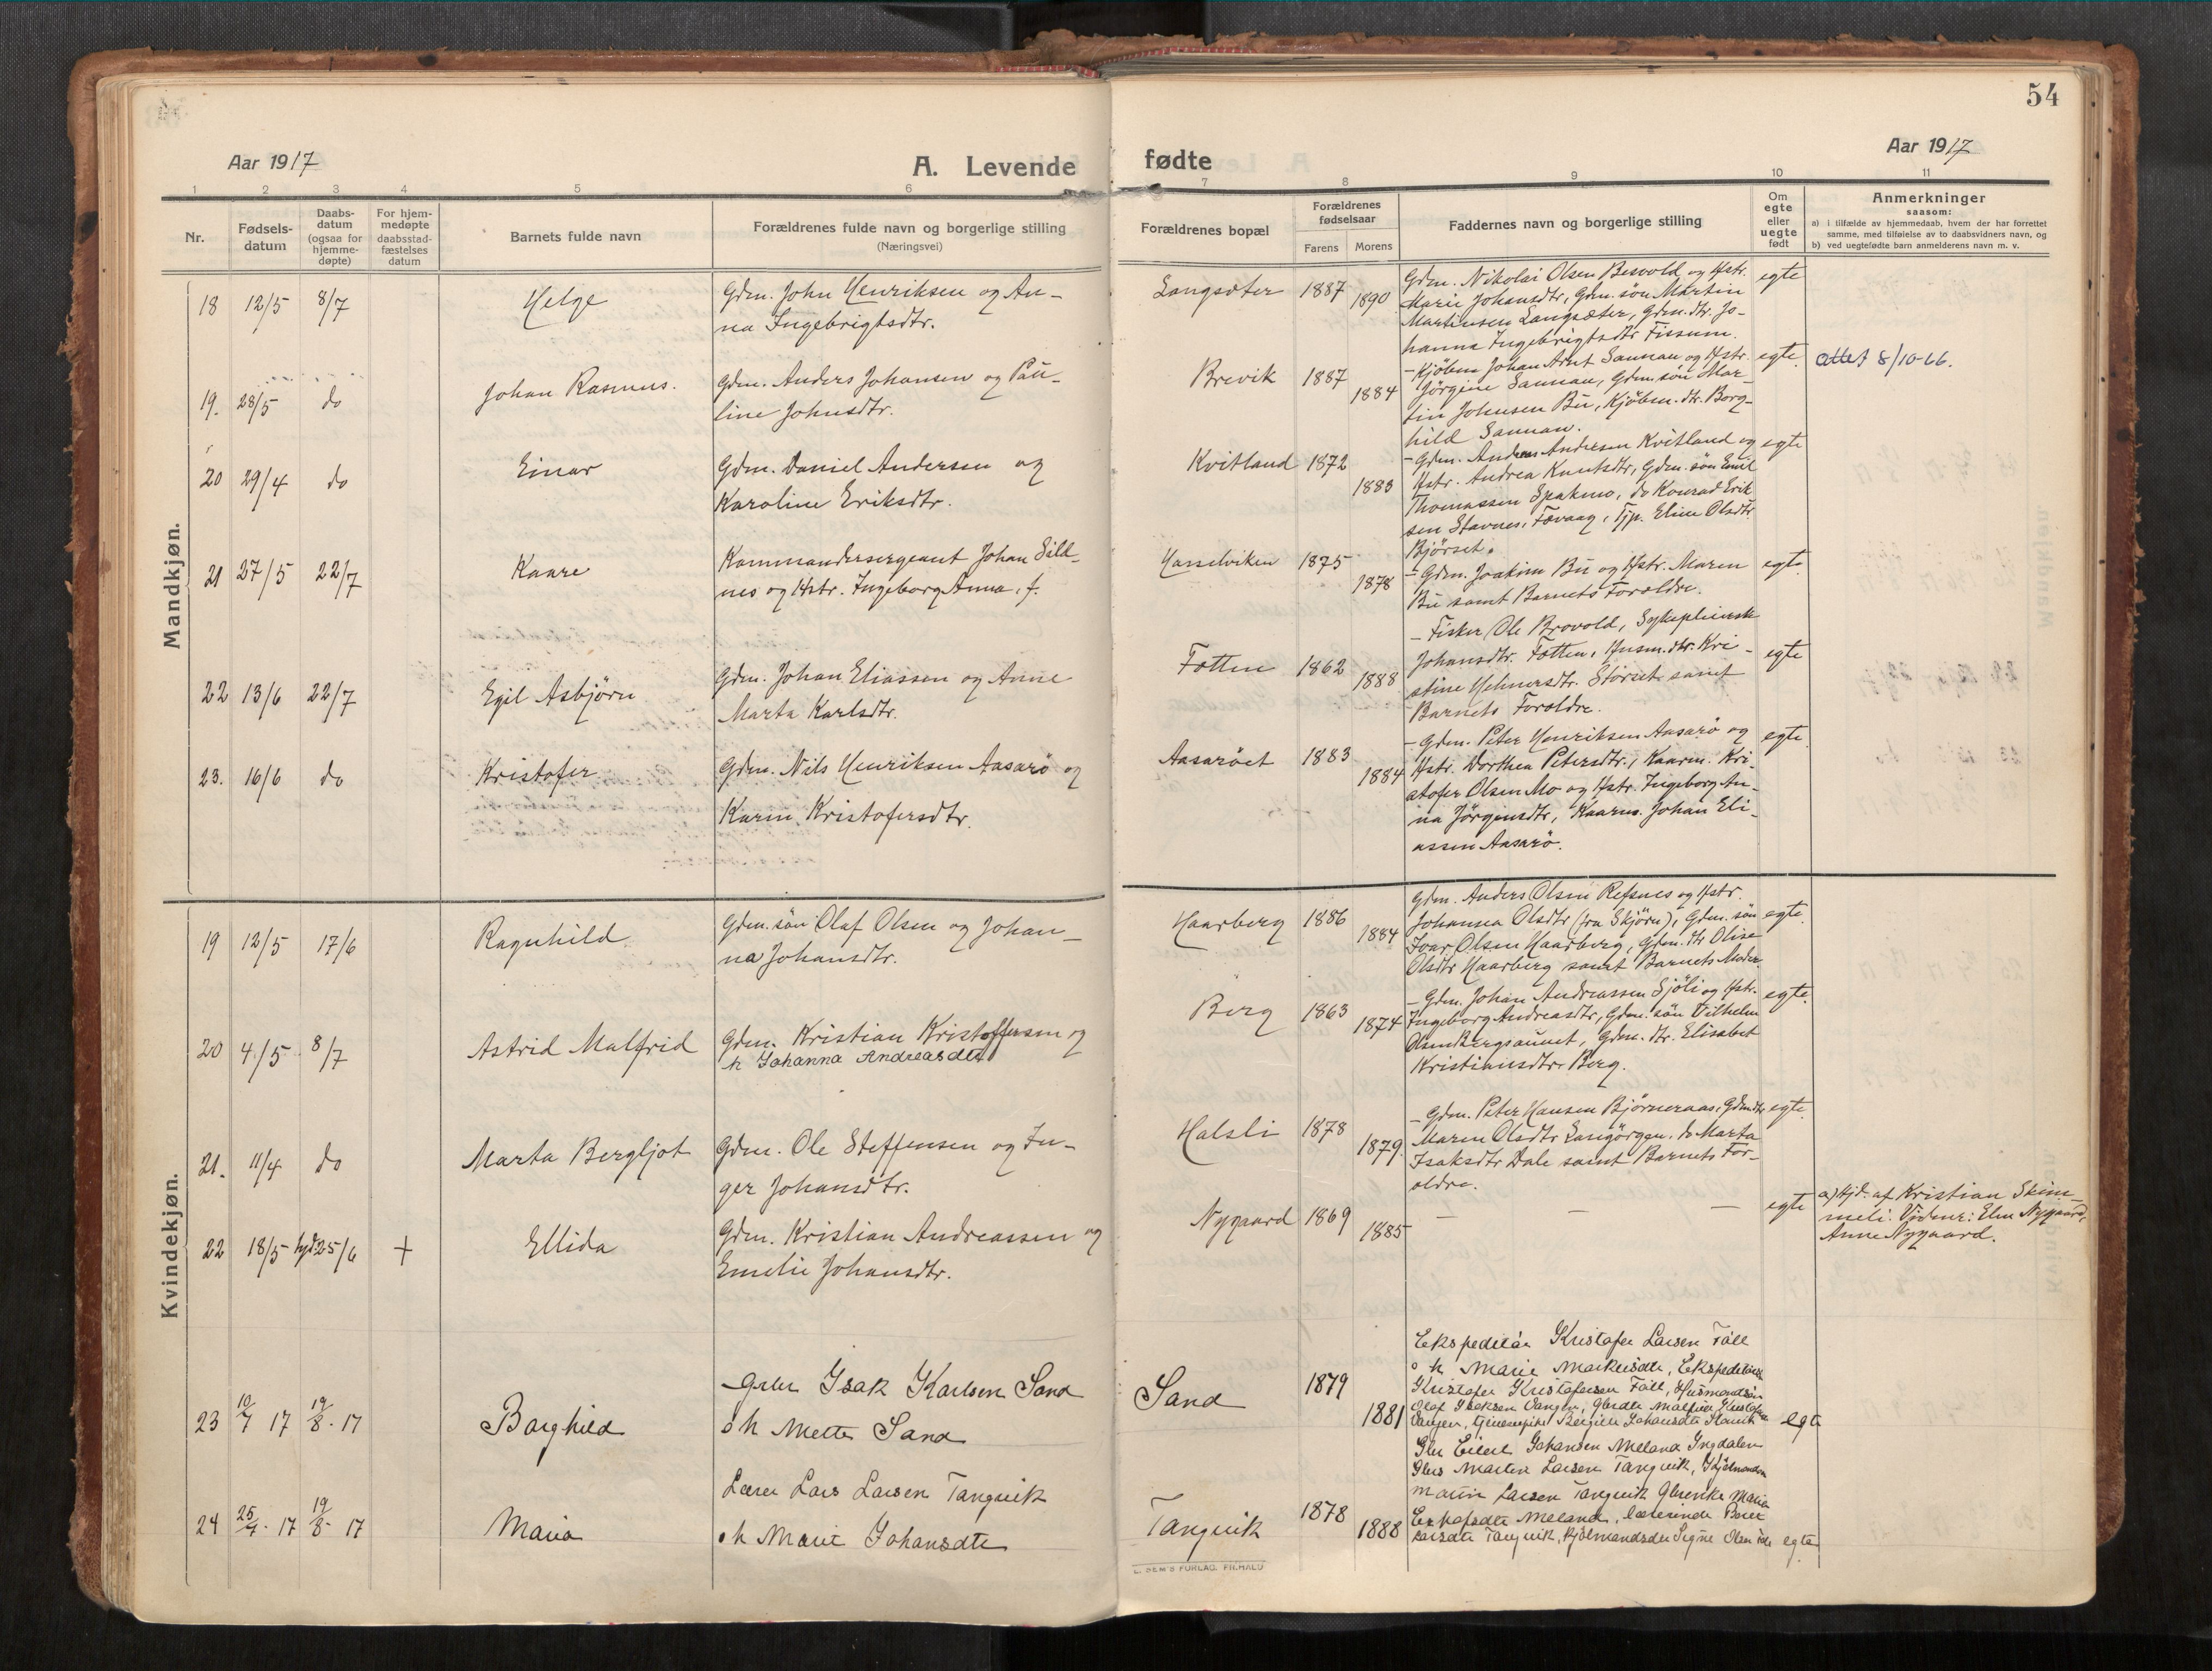 54
Aar 1917
A. Levende
fødte
Aar 1917
1 2 3 4 5 6 7 8 9 10 11
Nr.
Fødsels-
datum
Daabs-
datum
(ogsaa for
hjemme-
døpte)
For hjem-
medøpte
daabsstad-
fæstelses
datum
Barnets fulde navn
Forældrenes fulde navn og borgerlige stilling
(Næringsvei)
Forældrenes bopæl
Forældrenes
fødselsaar
Farens Morens
Faddernes navn og borgerlige stilling
Om
egte
eller
uegte
født
Anmerkninger
saasom:
a) i tilfælde av hjemmedaab, hvem der har forrettet
samme, med tilføielse av to daabsvidners navn, og
b) ved uegtefødte barn anmelderens navn m. v.
Mandkjøn.
18 12/5 8/7 Helge
Gdm. John Henriksen og An-
na Ingebrigtsdtr.
Langsæter 1887 1890
Gdm. Nikolai Olsen Besvold og Hstr.
Marie Johansdtr, Gdm. søn Martin
Martinsen Langsæter, Gdm. dtr. Jo-
hanna Ingebrigtsdtr Fissum.
egte
19. 28/5 do Johan Rasmus.
Gdm. Anders Johansen og Pau-
line Johnsdtr.
Brevik 1887 1884
- Kjøbm Johan Arnt Sannan og Hstr.
Jørgine Sannan, Gdm. søn Mar-
tin Johnsen Bu, Kjøbm. dtr. Borg-
hild Sannan.
egte.
attest 8/10-66.
20 29/4 do Einar
Gdm. Daniel Andersen og
Karoline Eriksdtr.
Kvitland 1872 1883
- Gdm. Andreas Andersen Kvitland og
Hstr. Andrea Knutsdtr, Gdm. søn Emil
Thomassen Spakmo, do Konrad Erik-
sen Stavnes, Fevaag, Tjp. Eline Olsdtr
Bjørset.
egte
21 27/5 22/7 Kaare
Kommandersergeant Johan Sild-
nes og Hstr. Ingeborg Anna, f.
Hasselviken 1875 1878
- Gdm. Joakim Bu og Hstr. Maren
Bu samt Barnets Forældre.
egte
22 13/6 22/7 Egil Asbjørn
Gdm. Johan Eliassen og Anne
Marta Karlsdtr.
Fotten 1862 1888
- Fisker Ole Brovold, Sykepleiersk
Johansdtr. Fotten, Husm. dtr. Kri-
stine Helmersdtr. Størset samt
Barnets Forældre.
egte
23. 16/6 do Kristofer
Gdm. Nils Henriksen Aasarø og
Karen Kristofersdtr.
Aasarøet 1883 1884
- Gdm. Peter Henriksen Aasarø og
Hstr. Dorthea Petersdtr, Kaarm. Kri-
stofer Olsen Mo og Hstr. Ingeborg An-
na Jørgensdtr, Kaarm. Johan Eli-
assen Aasarø.
egte.
Kvindekjøn.
19 12/5 17/6 Ragnhild
Gdm. søn Olaf Olsen og Johan-
na Johansdtr.
Haarberg 1886 1884
Gdm. Anders Olsen Refsnes og Hstr.
Johanna Olsdtr (fra Skjørn), Gdm. søn
Ivar Olsen Haarberg, Gdm. dtr Olise
Olsdtr Haarberg samt Barnets Moder.
egte.
20 4/5 8/7 Astrid Malfrid
Gdm. Kristian Kristoffersen og
h Johanna Andreasdtr
Berg 1863 1874
- Gdm. Johan Andreassen Sjøli og Hstr.
Ingeborg Andreasdtr, Gdm. søn Vilhelm
Olsen Bergsaunet, Gdm. dtr. Elisabet
Kristiansdtr. Berg.
egte.
21. 11/4 do Marta Bergljot
Gdm. Ole Steffensen og In-
ger Johansdtr.
Halsli 1878 1879.
- Gdm. Peter Hansen Bjørneraas, Gdmdtr
Maren Olsdtr Langørgen, do Marta
Isaksdtr Dale samt Barnets For-
ældre.
egte.
22 18/5 hjd. 25/6 + Ellida
Gdm. Kristian Andreassen og
Emelie Johansdtr.
Nygaard 1869 1885
- - - egte
a) Hjd. af Kristian Skim-
meli. Vidner: Elen Nygaard,
Anne Nygaard.
23 10/7 17 19/8. 17 Borghild
Gbr Isak Karlsen Sand
o h Mette Sand
Sand 1879 1881
Ekspeditør Kristofer Larsen Fall
o h Marie Markusdtr, Ekspeditør
Kristofer Kristofersen Fall, Husmandsøn
Olaf Isaksen Vangen,
egte
24 25/4. 17 19/8. 17 Maria
Lærer Lars Larsen Tangvik
o h Marie Johansdtr
Tangvik 1878 1888
Gbr Eilert Johansen Meland Ingdalen
Gbrs Marten Larsen Tangvik,
Larsen Tangvik Maria
Meland, lærerinde
Larsdtr Tangvik, Signe Olsen
egte
E. SEM'S FORLAG, FR.HALD